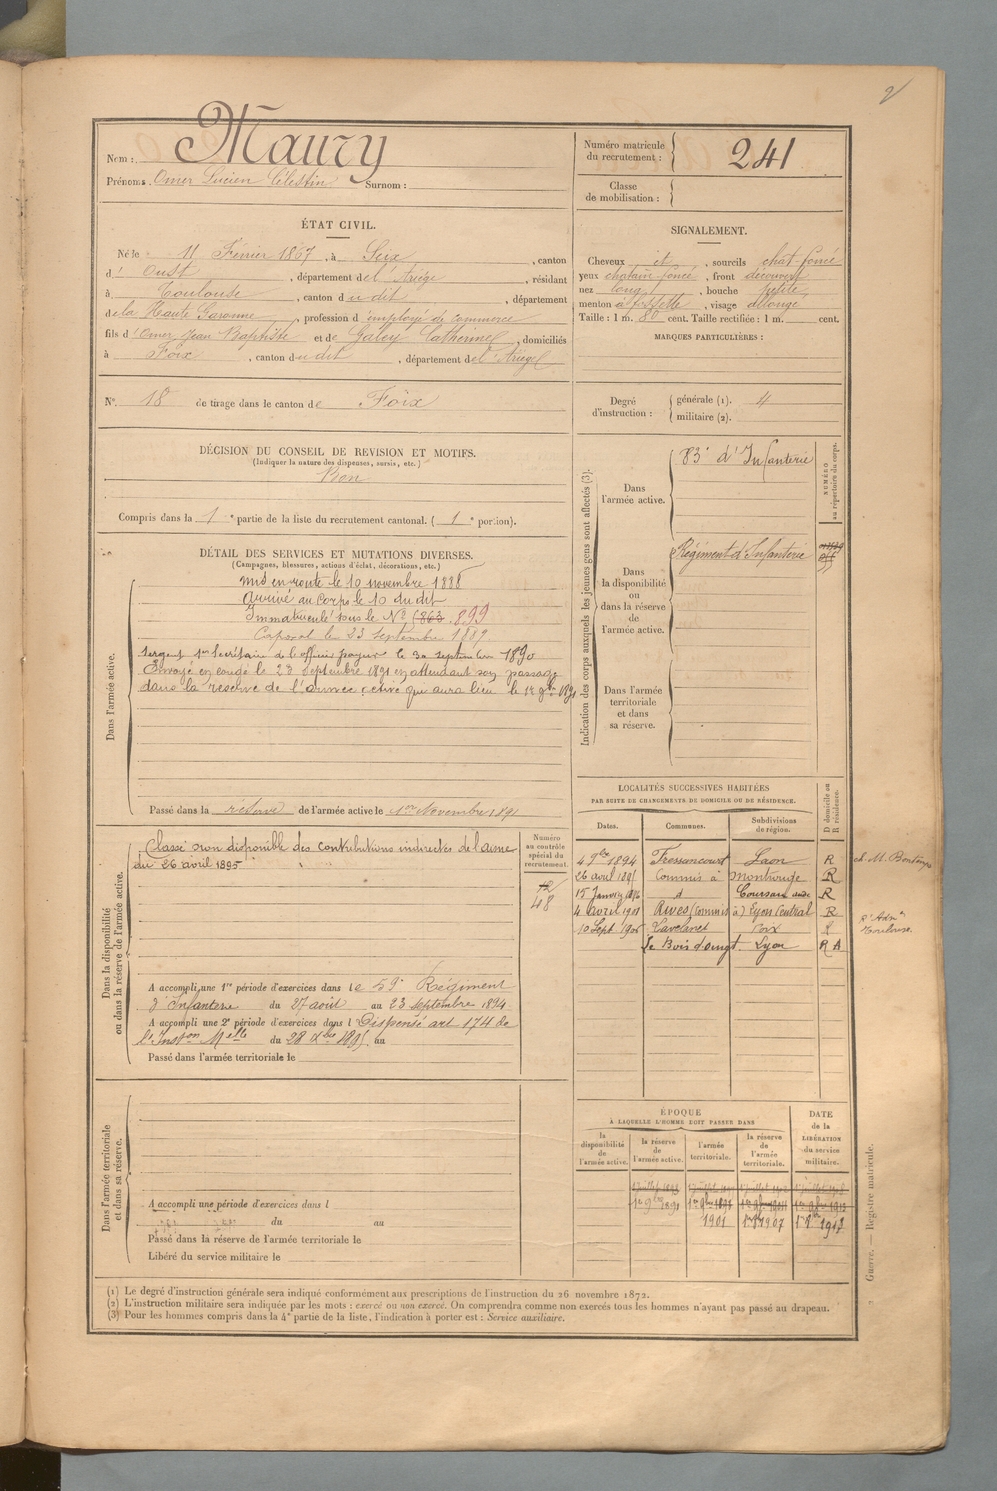 2
Nom : Maury
Prénoms : Omer Lucien Célestin Surnom :
Numéro matricule du recrutement : 241
Classe de mobilisation :
ÉTAT CIVIL.
Né le 11 Février 1867, à Seix, canton
d' Oust, département de l'Ariège, résidant
à Toulouse, canton dudit, département
de la Haute Garonne, profession d'employé de commerce
fils d'Omer Jean Baptiste et de Galey Catherine, domiciliés
à Foix, canton dudit, département de l'Ariège
N° 18 de tirage dans le canton de Foix
SIGNALEMENT.
Cheveux et, sourcils chat. foncé
yeux chatain foncé, front découvert
nez long, bouche petite
menton à fossette, visage allongé
Taille : 1 m. 80 cent. Taille rectifiée : 1 m. cent.
MARQUES PARTICULIÈRES :
Degré d'instruction : générale (1). 4
militaire (2).
DÉCISION DU CONSEIL DE REVISION ET MOTIFS.
(Indiquer la nature des dispenses, sursis, etc.)
Bon
Compris dans la 1e partie de la liste du recrutement cantonal. (1e portion).
DÉTAIL DES SERVICES ET MUTATIONS DIVERSES.
(Campagnes, blessures, actions d'éclat, décorations, etc.)
Dans l'armée active.
Mis en route le 10 novembre 1888
Arrivé au corps le 10 du dit
Immatriculé sous le N° 1863. 899
Caporal le 23 Septembre 1889
Sergent 1er Secrétaire de l'officier payeur le 30 septembre 1890
Envoyé en congé le 23 Septembre 1891 en attendant son passage
dans la réserve de l'armée active qui aura lieu le 1er 9bre 1891
Passé dans la réserve de l'armée active le 1er Novembre 1891
Indication des corps auxquels les jeunes gens sont affectés (3).
NUMÉRO au répertoire du corps.
Dans l'armée active.
83e d'Infanterie
Dans la disponibilité ou dans la réserve de l'armée active.
Régiment d'Infanterie
Dans l'armée territoriale et dans sa réserve.
Dans la disponibilité ou dans la réserve de l'armée active.
Numéro au contrôle spécial du recrutement.
Classé non disponible des contributions indirectes de l'aisne
du 26 avril 1895
12
48
A accompli une 1re période d'exercices dans le 59e Régiment
d'Infanterie du 27 août au 23 septembre 1894
A accompli une 2e période d'exercices dans l Dispensé art 174 de
l'Inston Melle du 28 Xbre 1895 au
Passé dans l'armée territoriale le
LOCALITÉS SUCCESSIVES HABITÉES
PAR SUITE DE CHANGEMENTS DE DOMICILE OU DE RÉSIDENCE.
Dates. Communes. Subdivisions de région. D domicile ou R résidence.
4 9bre 1894 Fressancourt Laon R
26 avril 1895 Commis à Montrouge R
15 Janvier 1896 d Coursan aude R
4 avril 1901 Rives (Commis à) Lyon Central R
10 Sept 1905 Lavelanet Foix R
Le Bois d'oingt. Lyon R A
Dans l'armée territoriale et dans sa réserve.
A accompli une période d'exercices dans l
du au
Passé dans la réserve de l'armée territoriale le
Libéré du service militaire le
ÉPOQUE
À LAQUELLE L'HOMME DOIT PASSER DANS
la disponibilité de l'armée active.
la réserve de l'armée active.
l'armée territoriale.
la réserve de l'armée territoriale.
DATE de la LIBÉRATION du service militaire.
1er 9bre 1891
1901
1907
(1) Le degré d'instruction générale sera indiqué conformément aux prescriptions de l'instruction du 26 novembre 1872.
(2) L'instruction militaire sera indiquée par les mots : exercé ou non exercé. On comprendra comme non exercés tous les hommes n'ayant pas passé au drapeau.
(3) Pour les hommes compris dans la 4e partie de la liste, l'indication à porter est : Service auxiliaire.
Guerre. — Registre matricule.